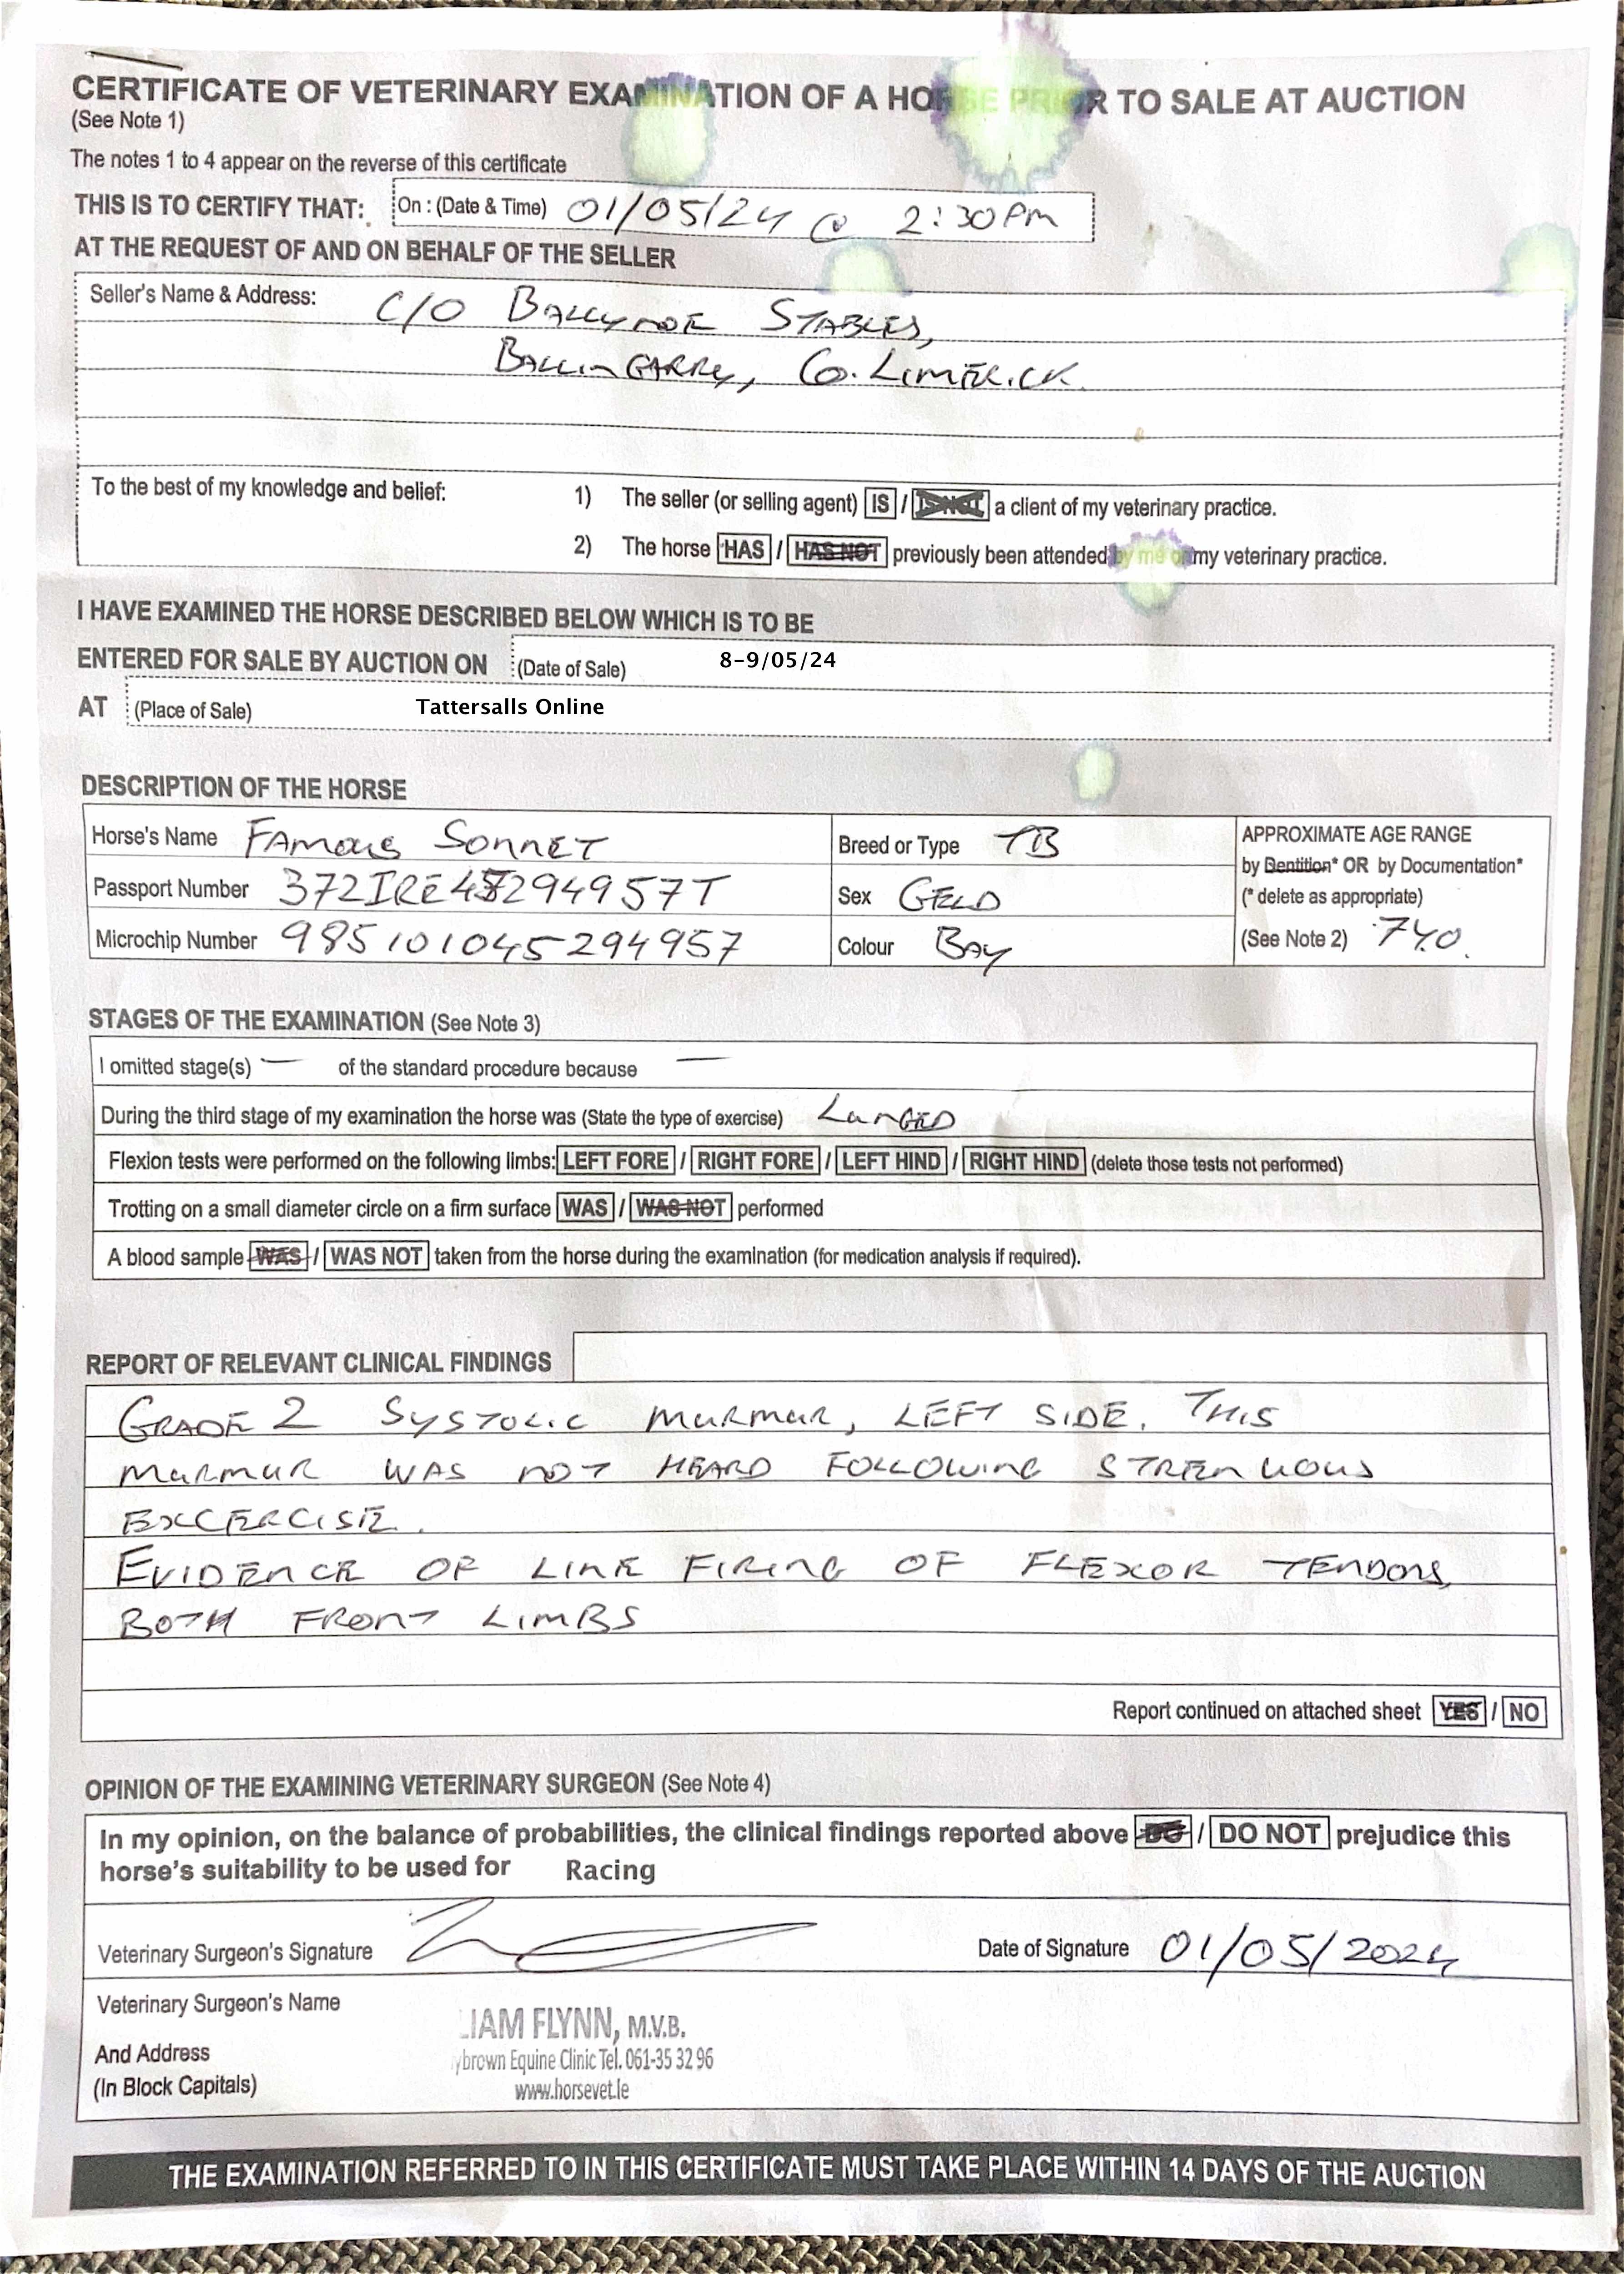 CERTIFICATE OF VETERINARY EXAMINATION OF A HORSE PRIOR TO SALE AT AUCTION
(See Note 1)
The notes 1 to 4 appear on the reverse of this certificate
THIS IS TO CERTIFY THAT: On : (Date & Time) 01/05/24 @ 2:30PM
AT THE REQUEST OF AND ON BEHALF OF THE SELLER
Seller's Name & Address: C/O BALLYMOE STABLES,
BALLINGARRY, CO. LIMERICK.
To the best of my knowledge and belief: 1) The seller (or selling agent) IS / IS NOT a client of my veterinary practice.
2) The horse HAS / HAS NOT previously been attended by me or my veterinary practice.
I HAVE EXAMINED THE HORSE DESCRIBED BELOW WHICH IS TO BE
ENTERED FOR SALE BY AUCTION ON (Date of Sale) 8-9/05/24
AT (Place of Sale) Tattersalls Online
DESCRIPTION OF THE HORSE
Horse's Name FAMOUS SONNET Breed or Type TB APPROXIMATE AGE RANGE
by Dentition* OR by Documentation*
Passport Number Sex GELD (* delete as appropriate)
Microchip Number 985101045294957 Colour BAY (See Note 2) 7YO.
STAGES OF THE EXAMINATION (See Note 3)
I omitted stage(s) — of the standard procedure because —
During the third stage of my examination the horse was (State the type of exercise) LUNGED
Flexion tests were performed on the following limbs: LEFT FORE / RIGHT FORE / LEFT HIND / RIGHT HIND (delete those tests not performed)
Trotting on a small diameter circle on a firm surface WAS / WAS NOT performed
A blood sample WAS / WAS NOT taken from the horse during the examination (for medication analysis if required).
REPORT OF RELEVANT CLINICAL FINDINGS
GRADE 2 SYSTOLIC MURMUR, LEFT SIDE. THIS
MURMUR WAS NOT HEARD FOLLOWING STRENUOUS
EXCERCISE.
EVIDENCE OF LINE FIRING OF FLEXOR TENDONS,
BOTH FRONT LIMBS
Report continued on attached sheet YES / NO
OPINION OF THE EXAMINING VETERINARY SURGEON (See Note 4)
In my opinion, on the balance of probabilities, the clinical findings reported above DO / DO NOT prejudice this
horse's suitability to be used for Racing
Veterinary Surgeon's Signature Date of Signature 01/05/2024
Veterinary Surgeon's Name
LIAM FLYNN, M.V.B.
And Address
ybrown Equine Clinic Tel. 061-35 32 96
(In Block Capitals)
www.horsevet.ie
THE EXAMINATION REFERRED TO IN THIS CERTIFICATE MUST TAKE PLACE WITHIN 14 DAYS OF THE AUCTION